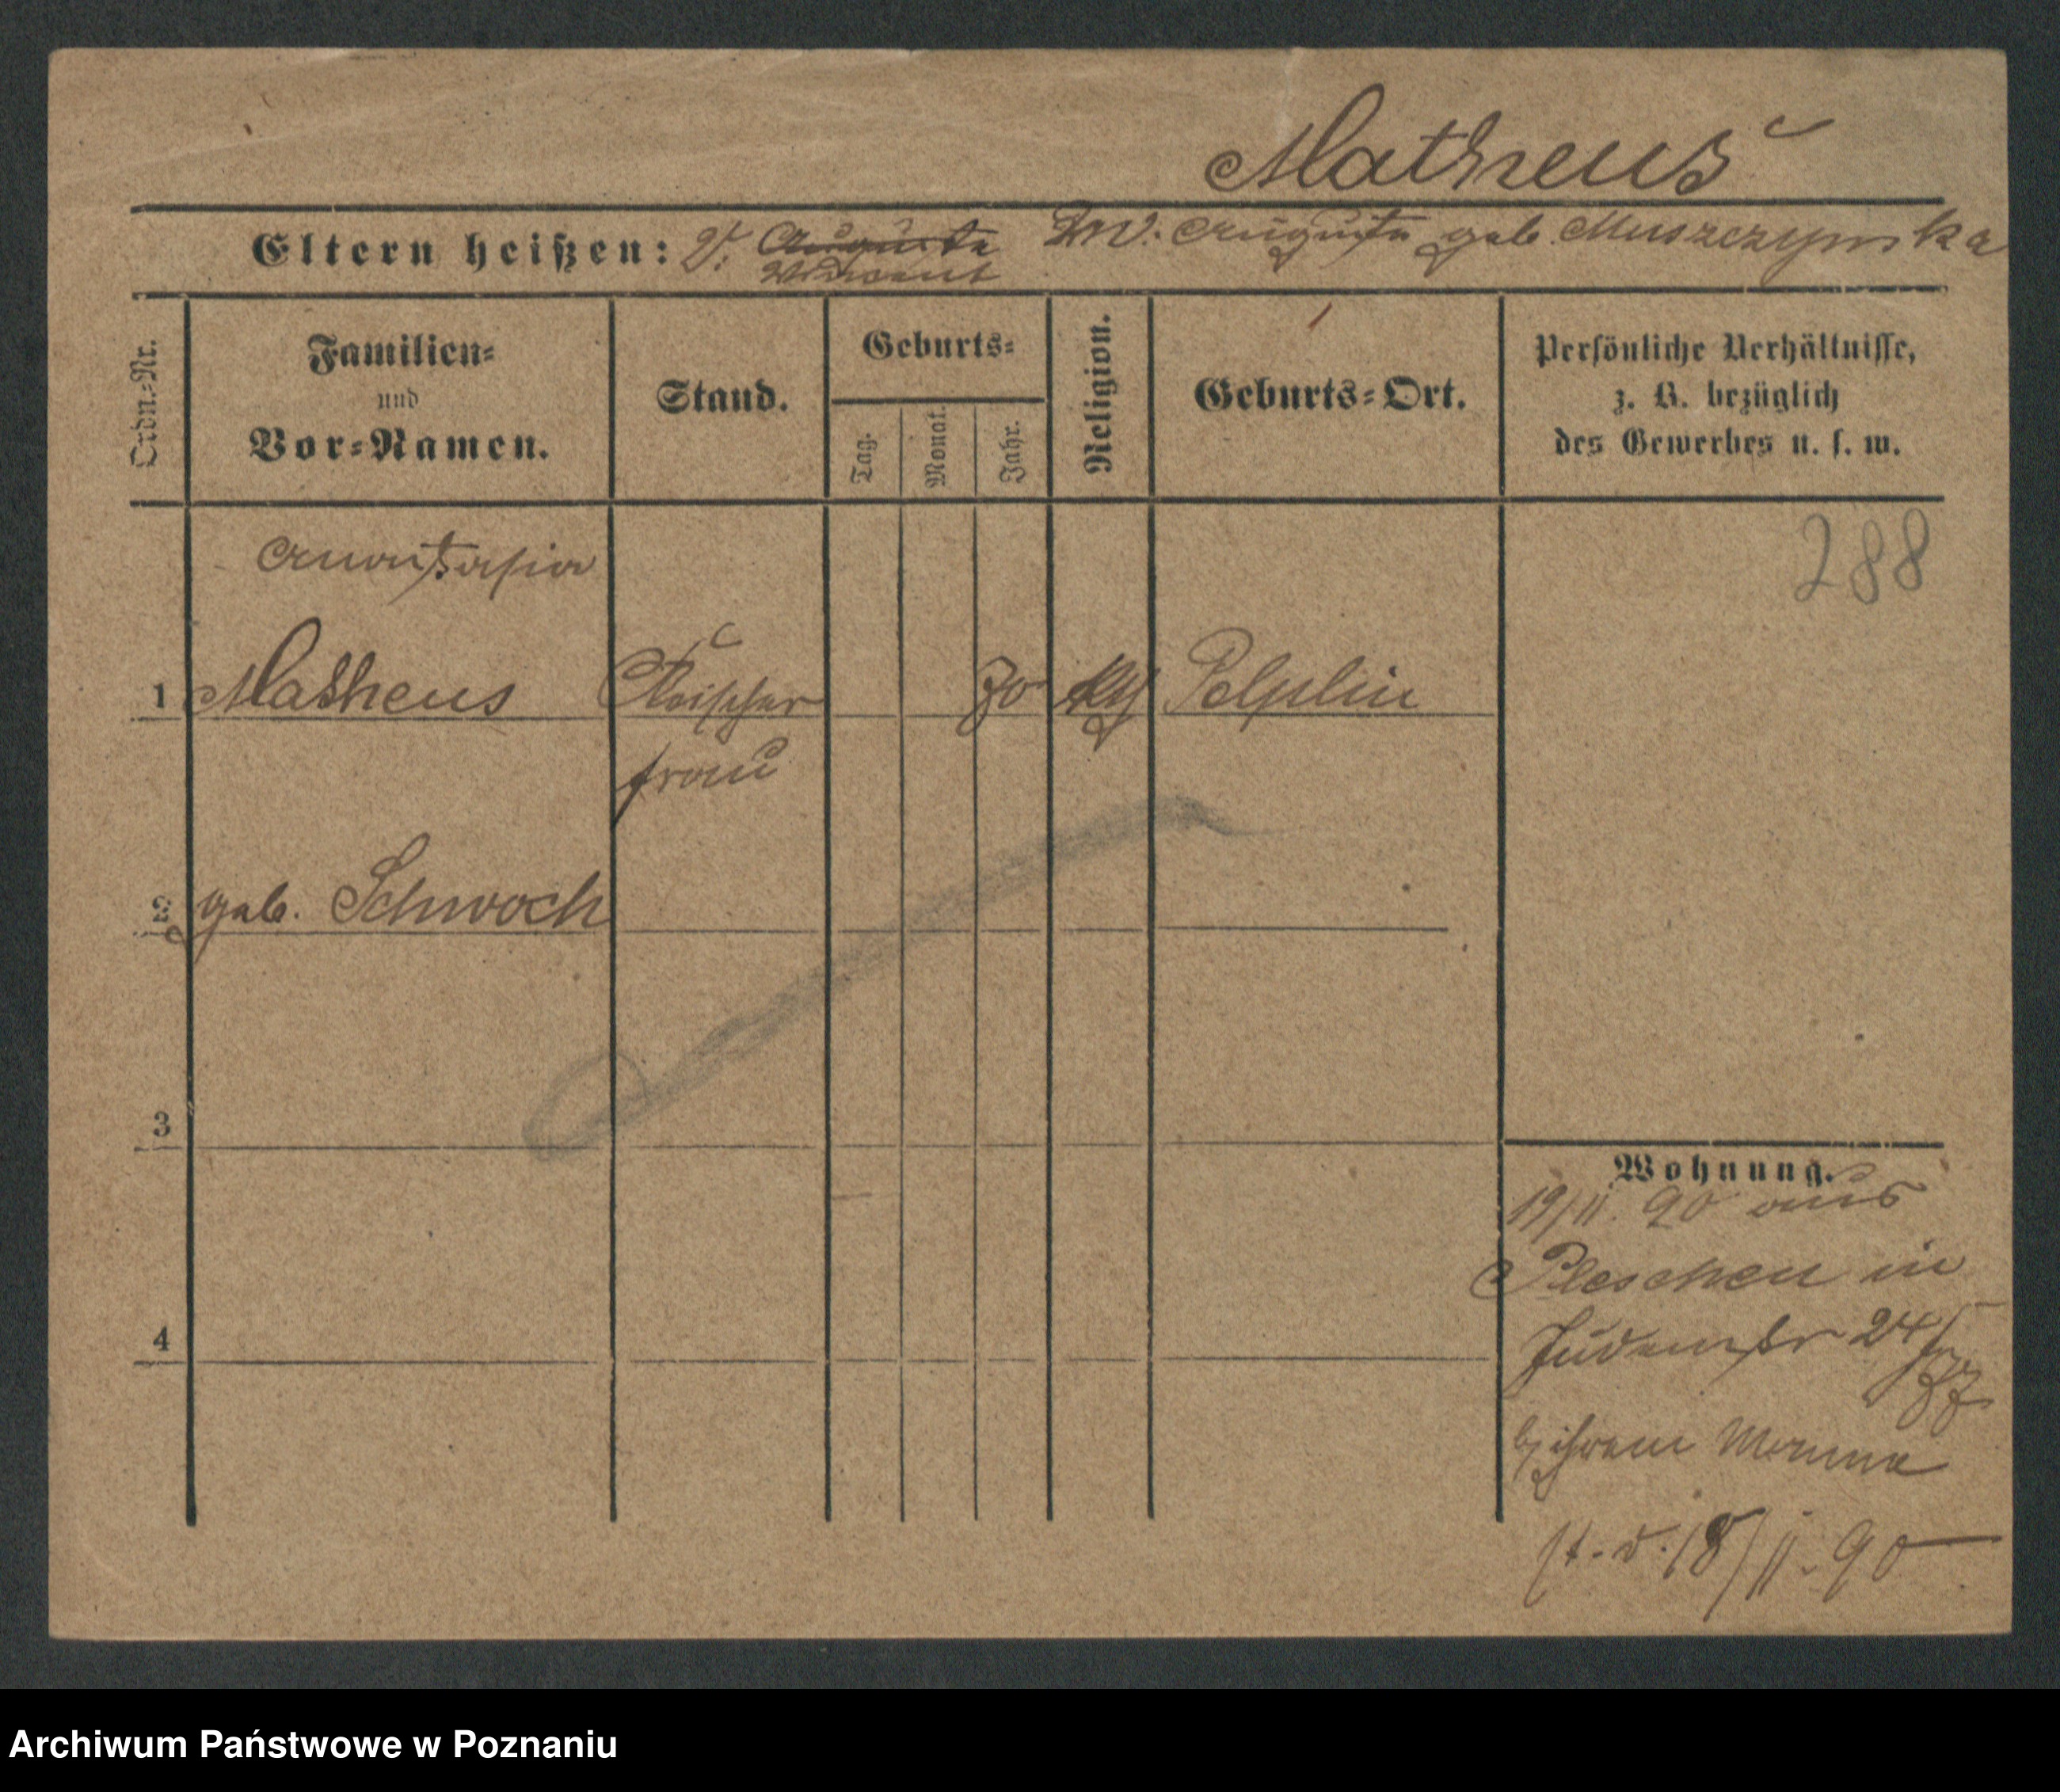 Matheus
Eltern heißen: V: Auguste M. Auguste geb. Muszczynska
Vincent
Ordn.-Nr.
Familien-
und
Vor-Namen.
Stand.
Geburts-
Tag.
Monat.
Jahr.
Religion.
Geburts-Ort.
Persönliche Verhältnisse,
z. B. bezüglich
des Gewerbes u. s. w.
288
Anastasia
1 Matheus Fleischer 30 kth Pelplin
frau
2 geb. Schwoch
3
Wohnung.
19/11. 90 aus
Pleschen in
4
Judenstr 24
b/ ihrem Manne
st. d. 18/11. 90
Archiwum Państwowe w Poznaniu